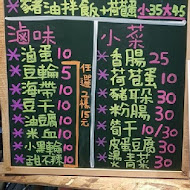 豬油拌飯+荷包 小35大45
滷味
滷蛋 10
豆輪 5
海帶 10
豆干 10
油豆腐 10
米血 10
小貢丸 10
甜不辣 10
任選3樣15元
小菜
香腸 25
荷包蛋 10
豬耳朵 30
粉腸 30
筍干 10/30
皮蛋豆腐 30
燙青菜 30